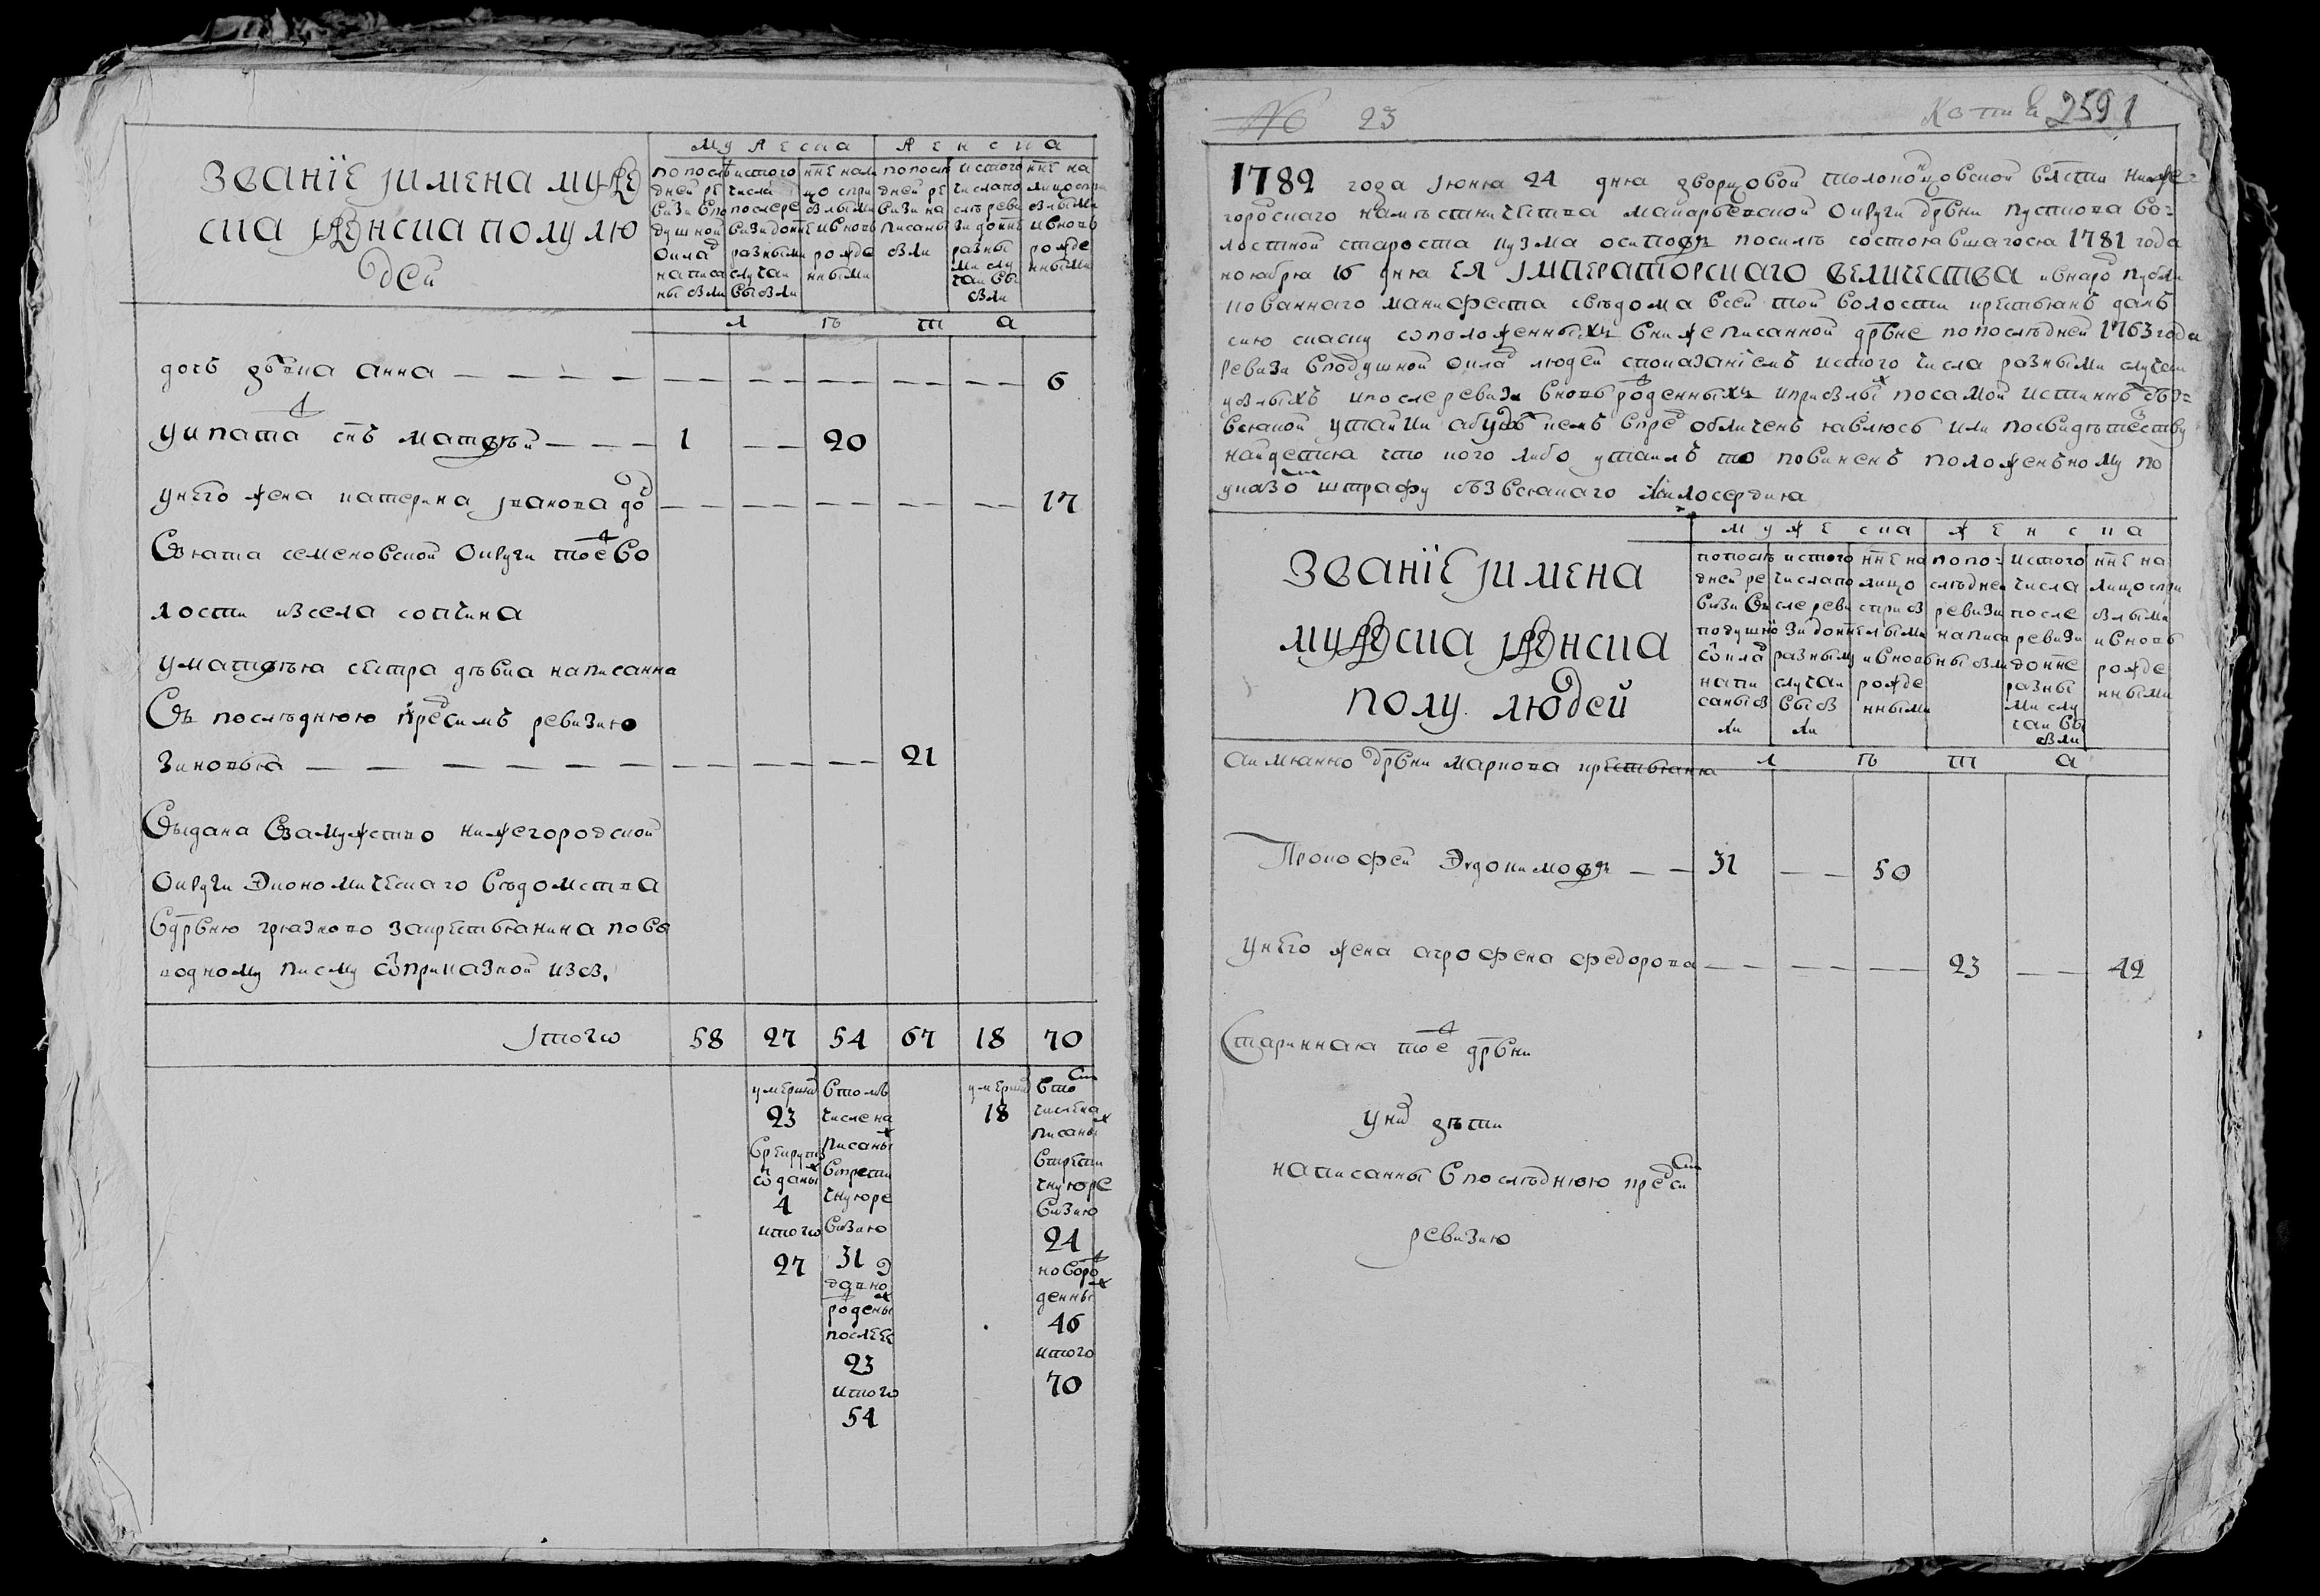 званiе iимена муже
ска iженска полу лю
дей
мужеска женска
по после
дней ре
визи впо
душной
оклад
написа
ны были
истого
числа
послере
визи доне
разными
случаи
выбыли
нне нали
цо спри
былыми
ивновь
рожде
нными
по после
дней ре
визи на
писаны
были
истого
числа по
сле реви
зи доне
разны
ми слу
чаи вы
были
нне на
лицо спри
былыми
ивновь
рожде
нными
л ѣ т а
дочь девка анна — — — — — — — — — 6
у ипата снъ матвѣй — — — 1 — — 20
унего жена катерина iванова до — — — — — — — 17
взята семеновской округи тое во
лости изсела сопчина
уматвѣя сестра дѣвка написанна
въ последнюю пред симъ ревизию
зиновья — — — — — — — — — 21
выдана взамужство нижегородской
округи экономическаго ведомства
вдрвню грязново закрестьянина пово
водному писму с приказной избы
iтого 58 27 54 67 18 70
умерши
23
врекруты
оданы
4
итого
27
втомъ
числе на
писаны
втрети
чнуюре
визию
31
давно
родены
послее
23
итого
54
умерши
18
втом
числена
писаны
втрети
чнуюре
визию
24
новоро
денны
46
итого
70
№ 23
2591
1782 года iюня 24 дня дворцовой толоконцовской влсти ниже=
городскаго намѣстничества макарьевской округи дрвни пустова во=
лостной староста кузма осиповъ посилѣ состоявшагося 1781 года
ноября 16 дня ея iмператорскаго величества ивнарод публи
кованнаго манифеста сведома всей той волости крестьянъ далъ
сию скаску оположенныхъ внижеписанной дрвне по последней 1763 года
ревизи вподушной оклад людей споказанiемъ истого числа разными случаи
убылыхъ ипослеревизи вновь роденныхъ иприбылых посамой истинне без=
всякой утайки абуде чемъ впред обличенъ явлюсь или посвидетельству
найдетца что кого либо утаилъ то повиненъ положенному по
указом штрафу безвсякаго милосердия
званiе iимена
мужеска iженска
полу людей
мужеска женска
попосле
дней ре
визи въ
подушно
оклад
напи
саны бы
ли
истого
числапо
слереви
зи доне
разными
случаи
выбы
ли
нне на
лицо
сприб
ылыми
ивновь
рожде
нными
попо=
следней
ревизи
написа
ны были
истого
числа
после
ревизи
доне
разны
ми слу
чаи вы
были
нне на
лицо спри
былыми
ивновь
рожде
нными
аимянно дрвни маркова крестьяня л ѣ т а
Прокофей Эвдокимовъ — — 31 — — 50
унего жена агрофена федорова — — — — — — 23 — — 42
Старинная тое дрвни
уних дѣти
написанны впоследнюю пред сим
ревизию